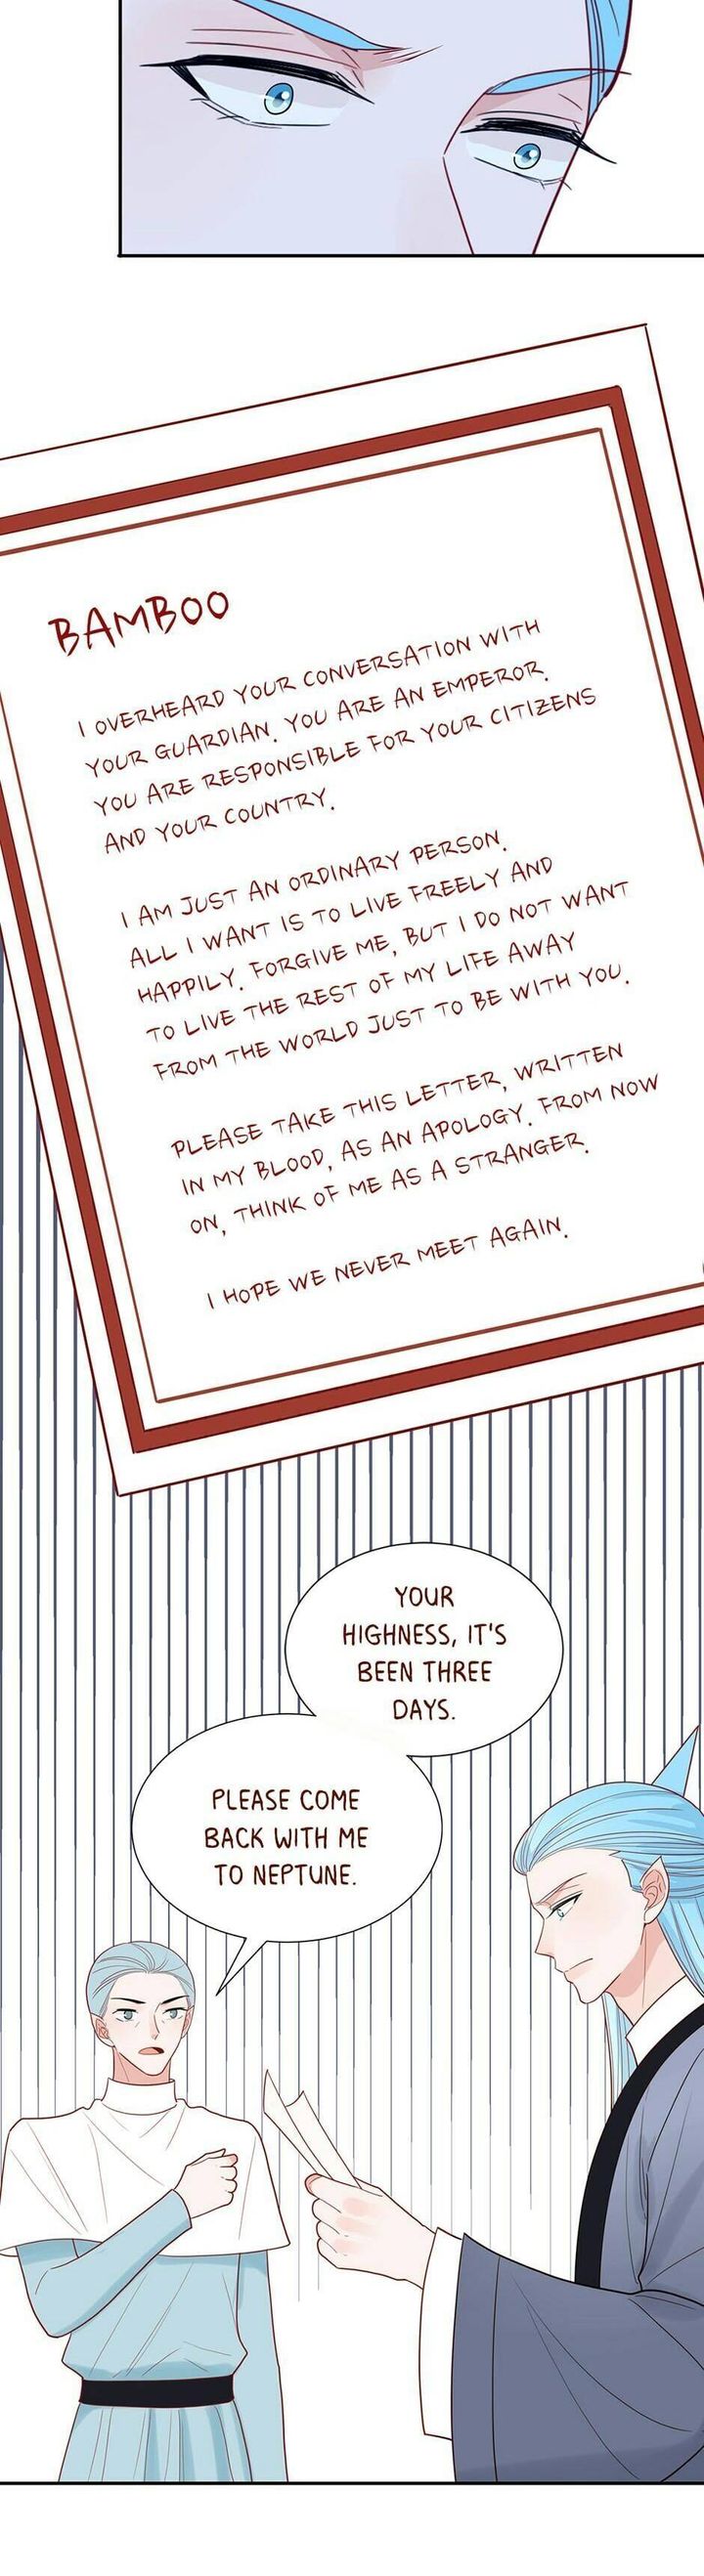 BAMBOO
I OVERHEARD YOUR CONVERSATION WITH
YOUR GUARDIAN. YOU ARE AN EMPEROR.
YOU ARE RESPONSIBLE FOR YOUR CITIZENS
AND YOUR COUNTRY.
I AM JUST AN ORDINARY PERSON.
ALL I WANT IS TO LIVE FREELY AND
HAPPILY. FORGIVE ME, BUT I DO NOT WANT
TO LIVE THE REST OF MY LIFE AWAY
FROM THE WORLD JUST TO BE WITH YOU.
PLEASE TAKE THIS LETTER, WRITTEN
IN MY BLOOD, AS AN APOLOGY. FROM NOW
ON, THINK OF ME AS A STRANGER.
I HOPE WE NEVER MEET AGAIN.
YOUR
HIGHNESS, IT'S
BEEN THREE
DAYS.
PLEASE COME
BACK WITH ME
TO NEPTUNE.